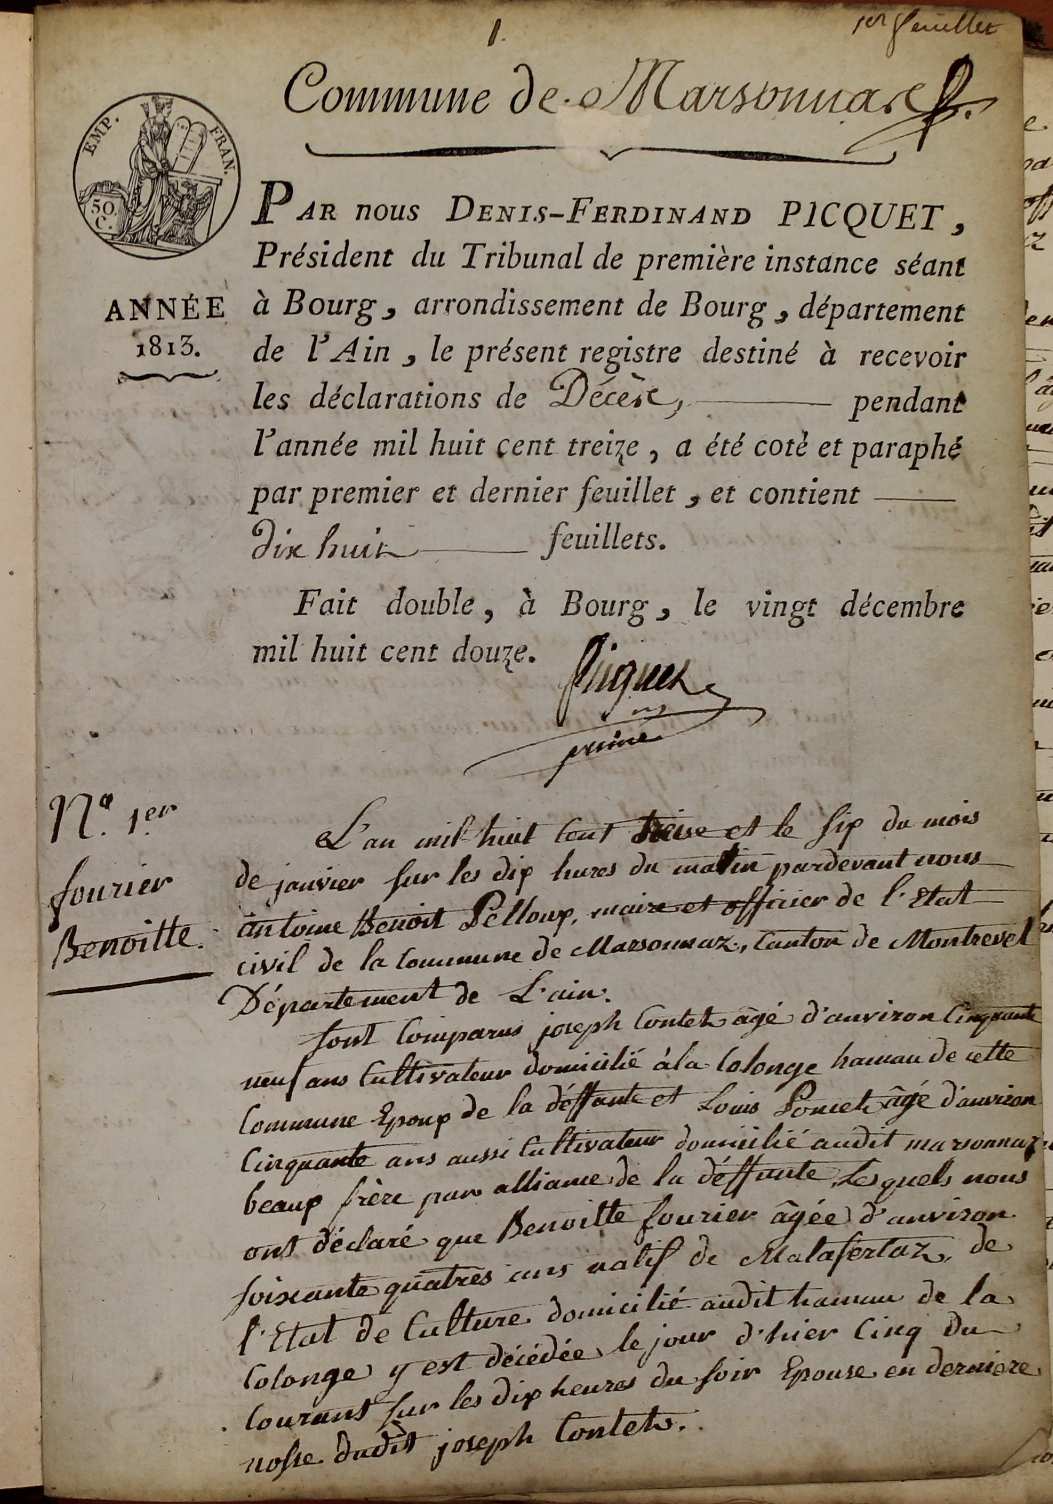 1.
1er feuillet
Commune de Marsonnas
EMP. FRAN.
50
C.
ANNÉE
1813.
PAR nous DENIS-FERDINAND PICQUET,
Président du Tribunal de première instance séant
à Bourg, arrondissement de Bourg, département
de l'Ain, le présent registre destiné à recevoir
les déclarations de Décès, pendant
l'année mil huit cent treize, a été coté et paraphé
par premier et dernier feuillet, et contient
dix huit feuillets.
Fait double, à Bourg, le vingt décembre
mil huit cent douze.
Picquet
No. 1er
fourier
Benoitte.
L'an mil huit cent treise et le six du mois
de janvier sur les dix hures du matin pardevant nous
antoine Benoit Pelloux, maire et officier de l'Etat
civil de la Commune de Marsonnaz, Canton de Montrevel
Département de L'ain.
sont Comparus joseph Contet âgé d'anviron Cinquante
neuf ans Cultivateur domicilié à la Colonge hamau de cette
Commune Epoux de la déffunte et Louis Poncet âgé d'anviron
Cinquante ans aussi Cultivateur domicilié audit marsonnaz
beaux frère par alliance de la déffunte, Lesquels nous
ont déclaré que Benoitte fourier âgée d'anviron
soixante quatres ans natif de Malafertaz, de
l'Etat de Culture domicilié audit hamau de la
Colonge y est décédée le jour d'hier Cinq du
Courant sur les dix heures du soir Epouse en derniere
nosse dudit joseph Contet.